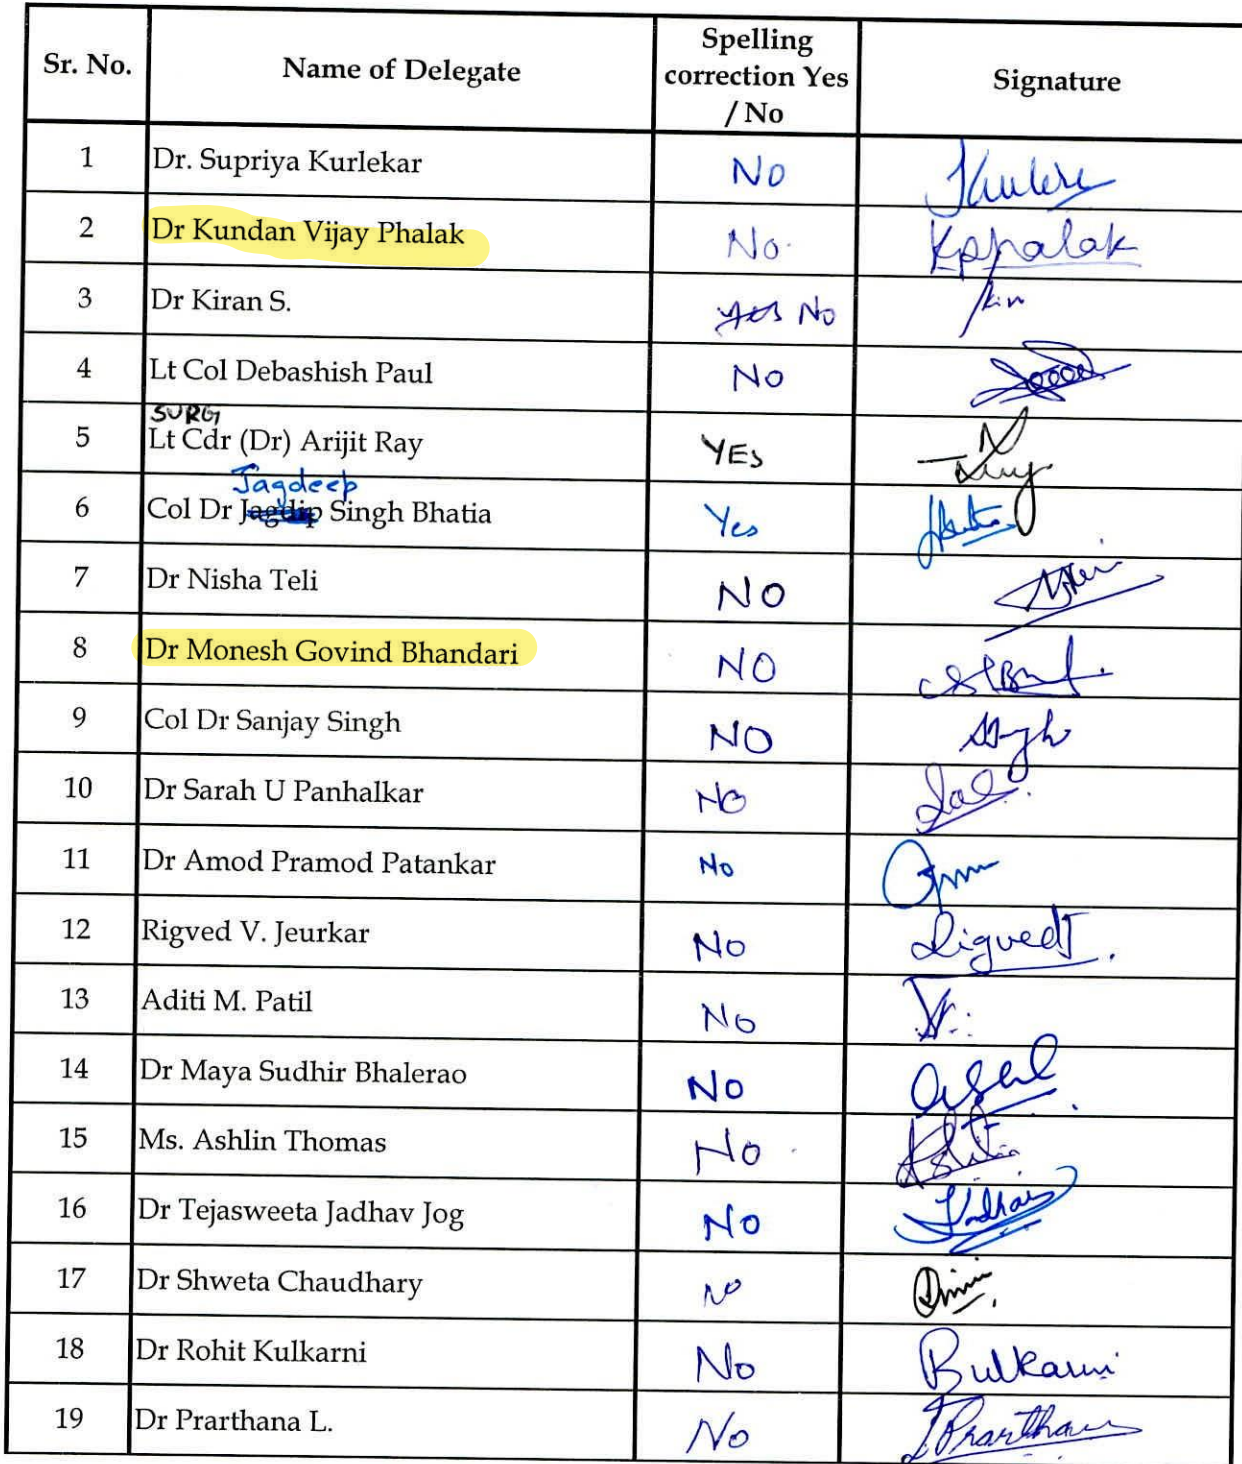 Sr. No. Name of Delegate Spelling correction Yes / No Signature
1 Dr. Supriya Kurlekar No
2 Dr Kundan Vijay Phalak No. Kpphalak
3 Dr Kiran S. Yes No
4 Lt Col Debashish Paul No
SURG
5 Lt Cdr (Dr) Arijit Ray YES
Jagdeep
6 Col Dr Jagdip Singh Bhatia Yes
7 Dr Nisha Teli NO
8 Dr Monesh Govind Bhandari NO
9 Col Dr Sanjay Singh NO
10 Dr Sarah U Panhalkar No
11 Dr Amod Pramod Patankar No
12 Rigved V. Jeurkar No
13 Aditi M. Patil No
14 Dr Maya Sudhir Bhalerao No
15 Ms. Ashlin Thomas No
16 Dr Tejasweeta Jadhav Jog No
17 Dr Shweta Chaudhary No
18 Dr Rohit Kulkarni No
19 Dr Prarthana L. No